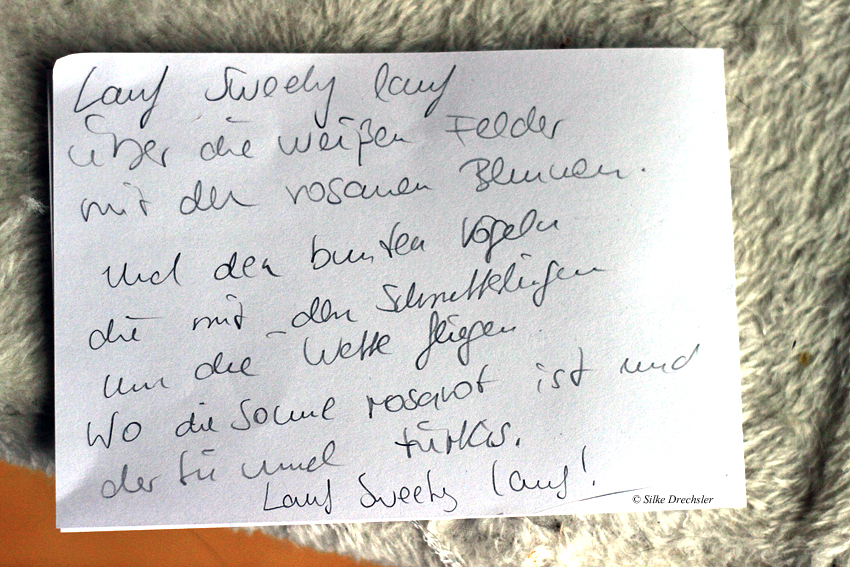 Lauf Sweety lauf
über die weißen Felder
mit den rosanen Blumen.
und den bunten Vögeln
die mit den Schmetterlingen
um die Wette fliegen.
Wo die Sonne rosarot ist und
der Himmel türkis.
Lauf Sweety lauf!
© Silke Drechsler